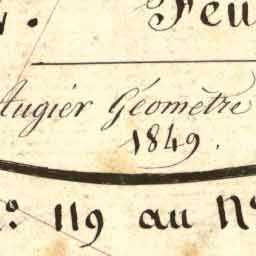 Feu
Augier Géomètre
1849.
º. 119 au Nº